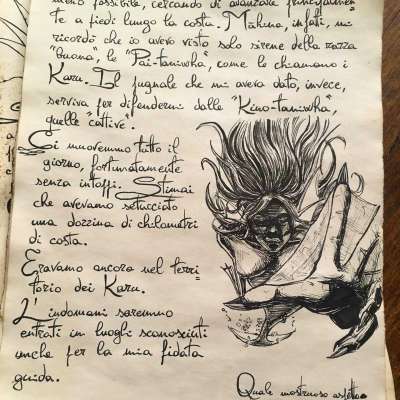 meno possibile, cercando di avanzare principalmen
te a piedi lungo la costa. Māhina, infatti, mi
ricordò che io avevo visto solo sirene della razza
"buona", le "Pai-taniwha", come le chiamano i
Karu. Il pugnale che mi aveva dato, invece,
serviva per difendermi dalle "Kino-taniwha",
quelle "cattive".
Ci muovemmo tutto il
giorno, fortunatamente
senza intoppi. Stimai
che avevamo setacciato
una dozzina di chilometri
di costa.
Eravamo ancora nel terri=
torio dei Karu.
L'indomani saremmo
entrati in luoghi sconosciuti
anche per la mia fidata
guida.
Quale mostruoso aspetto